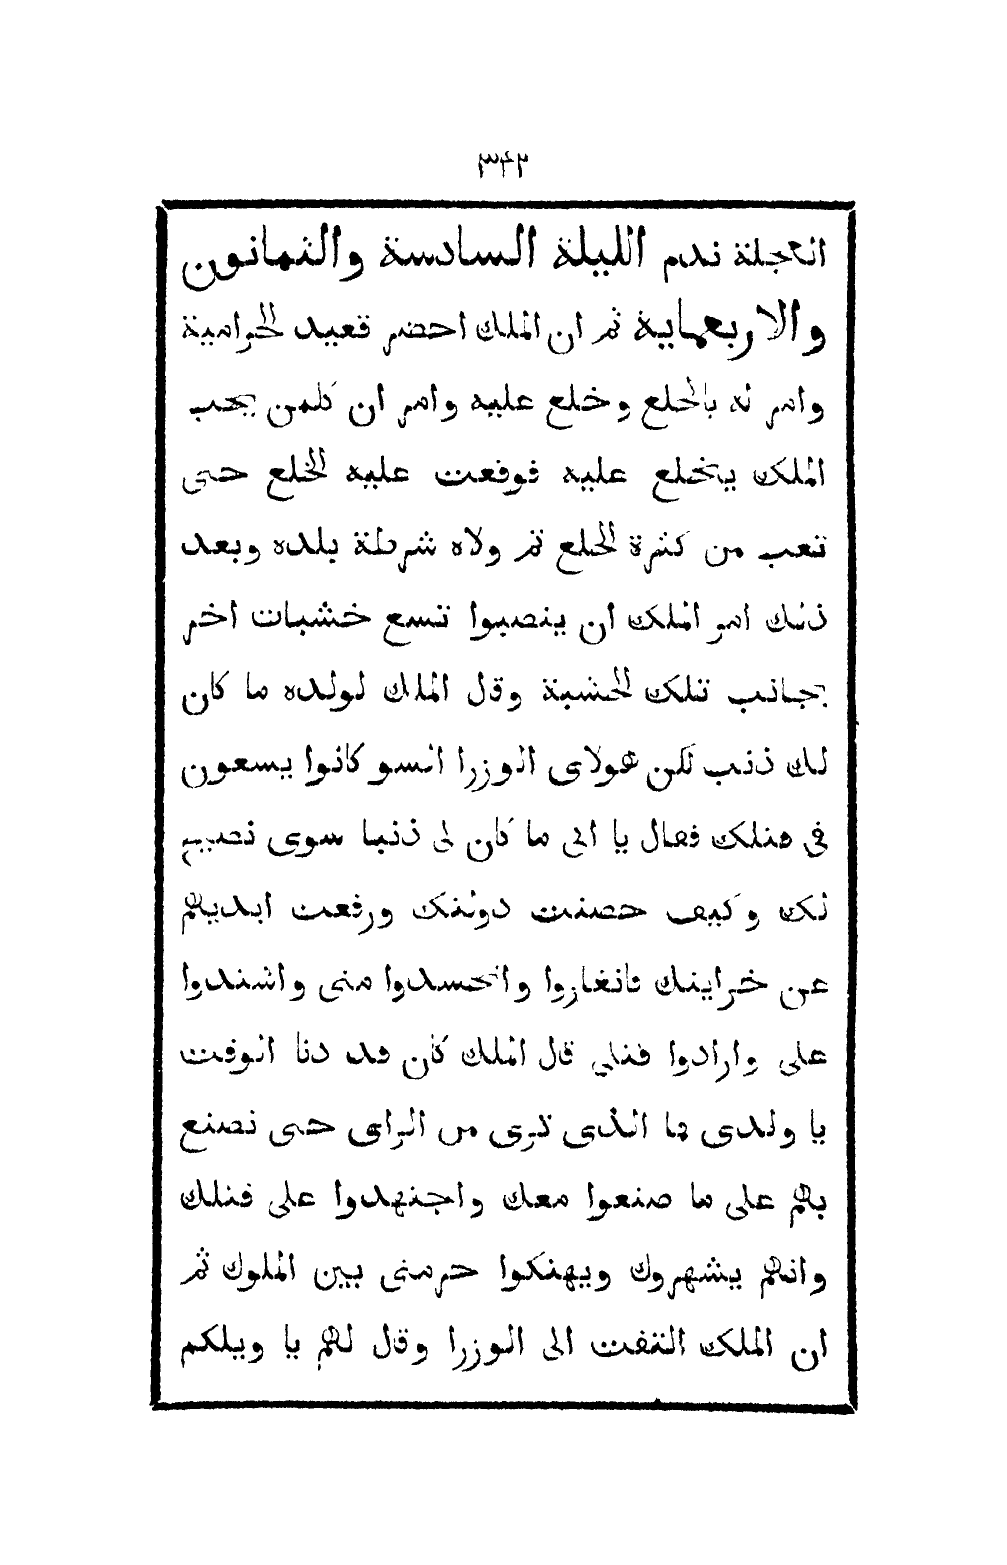 ٣٤٢
العجلة ندم الليلة السادسة والثمانون
والاربعماية ثم ان الملك احضر قعيد الحرامية
وامر له بالخلع وخلع عليه وامر ان كلمن يحب
الملك يخلع عليه فوقعت عليه الخلع حتى
تعب من كثرة الخلع ثم ولاه شرطة بلده وبعد
ذلك امر الملك ان ينصبوا تسع خشبات اخر
بجانب تلك الخشبة وقال الملك لولده ما كان
لك ذنب لكن هولاى الوزرا السو كانوا يسعون
فى قتلك فقال يا ابى ما كان لى ذنبا سوى نصيبى
لك وكيف حصنت دولتك ورفعت ايديهم
عن خراينك فانغازوا وانحسدوا منى واشتدوا
على وارادوا قتلى قال الملك كان قد دنا الوقت
يا ولدى فما الذى ترى من الراى حتى نصنع
بهم على ما صنعوا معك واجتهدوا على قتلك
وانهم يشهروك ويهتكوا حرمتى بين الملوك ثم
ان الملك التفت الى الوزرا وقال لهم يا ويلكم